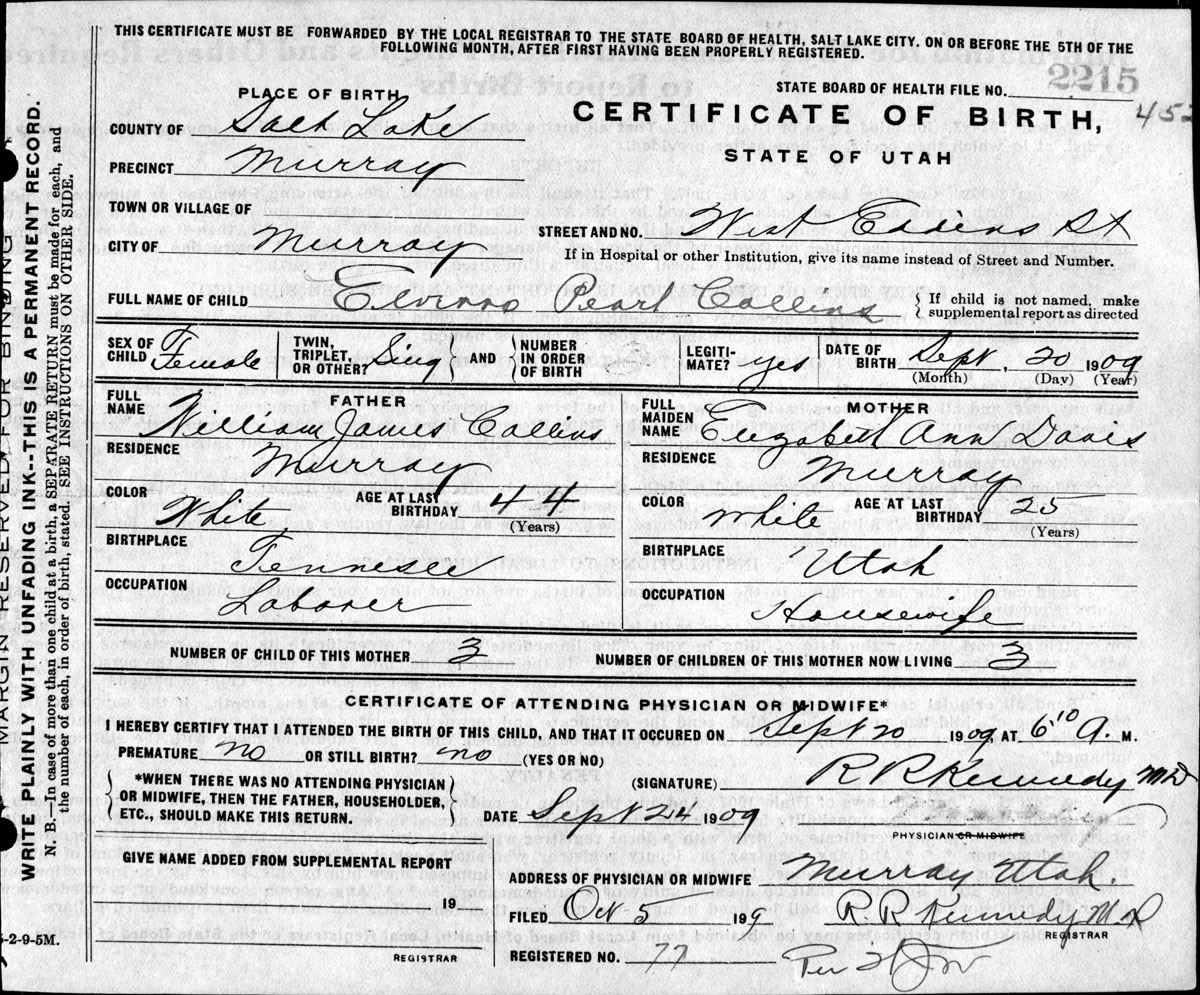 THIS CERTIFICATE MUST BE FORWARDED BY THE LOCAL REGISTRAR TO THE STATE BOARD OF HEALTH, SALT LAKE CITY. ON OR BEFORE THE 5TH OF THE
FOLLOWING MONTH, AFTER FIRST HAVING BEEN PROPERLY REGISTERED.
2215
STATE BOARD OF HEALTH FILE NO.
PLACE OF BIRTH
CERTIFICATE OF BIRTH, 452
STATE OF UTAH
COUNTY OF Salt Lake
PRECINCT Murray
TOWN OR VILLAGE OF
CITY OF Murray
STREET AND NO. West St
If in Hospital or other Institution, give its name instead of Street and Number.
FULL NAME OF CHILD Pearl Collins
If child is not named, make
supplemental report as directed
SEX OF CHILD Female
TWIN, TRIPLET, OR OTHER? Sing
AND
NUMBER IN ORDER OF BIRTH
LEGITIMATE? yes
DATE OF BIRTH Sept, 20 1909
(Month) (Day) (Year)
FATHER
FULL NAME William James Collins
RESIDENCE Murray
COLOR White
AGE AT LAST BIRTHDAY 44
(Years)
BIRTHPLACE Tennesee
OCCUPATION Laborer
MOTHER
FULL MAIDEN NAME Elizabeth Ann Davis
RESIDENCE Murray
COLOR white
AGE AT LAST BIRTHDAY 25
(Years)
BIRTHPLACE Utah
OCCUPATION Housewife
NUMBER OF CHILD OF THIS MOTHER 3
NUMBER OF CHILDREN OF THIS MOTHER NOW LIVING 3
CERTIFICATE OF ATTENDING PHYSICIAN OR MIDWIFE*
I HEREBY CERTIFY THAT I ATTENDED THE BIRTH OF THIS CHILD, AND THAT IT OCCURED ON Sept 20 1909, AT 6 10 A. M.
PREMATURE no OR STILL BIRTH? no (YES OR NO)
*WHEN THERE WAS NO ATTENDING PHYSICIAN
OR MIDWIFE, THEN THE FATHER, HOUSEHOLDER,
ETC., SHOULD MAKE THIS RETURN.
(SIGNATURE) R R Kennedy MD
DATE Sept 24 1909
PHYSICIAN OR MIDWIFE
GIVE NAME ADDED FROM SUPPLEMENTAL REPORT
19
REGISTRAR
ADDRESS OF PHYSICIAN OR MIDWIFE Murray Utah
FILED Oct 5 199 R. R. Kennedy MD
REGISTRAR
REGISTERED NO. 77 Per
5-2-9-5M.
MARGIN RESERVED FOR BINDING
WRITE PLAINLY WITH UNFADING INK--THIS IS A PERMANENT RECORD.
N. B.—In case of more than one child at a birth, a SEPARATE RETURN must be made for each, and
the number of each, in order of birth, stated. SEE INSTRUCTIONS ON OTHER SIDE.